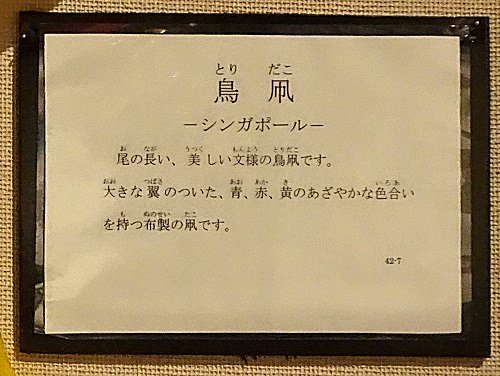 とり だこ
鳥 凧
－シンガポール－
お なが うつく もんよう とりだこ
尾の長い、美しい文様の鳥凧です。
おお つばさ あお あか き いろあ
大きな翼のついた、青、赤、黄のあざやかな色合い
も ぬのせい たこ
を持つ布製の凧です。
42-7